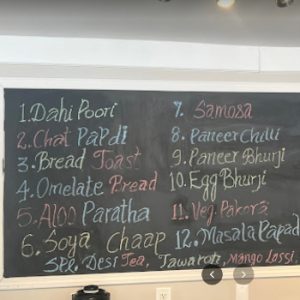 1. Dahi Poori
2. Chat Papdi
3. Bread Toast
4. Omelate Bread
5. Aloo Paratha
6. Soya Chaap
7. Samosa
8. Paneer Chilli
9. Paneer Bhurji
10. Egg Bhurji
11. Veg. Pakora
12. Masala Papad
Spe. Desi Tea, Mango Lassi.